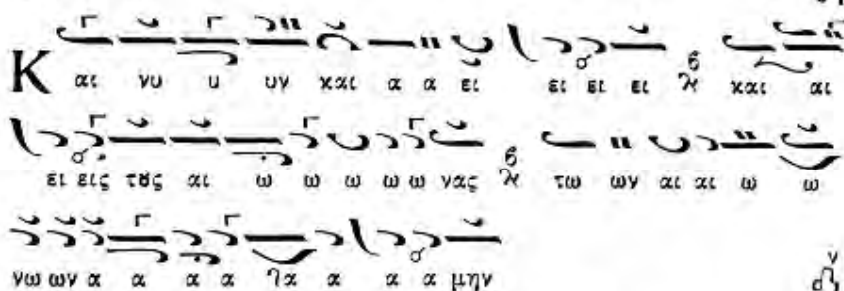 Και νυ υ υν και α α ει ει ει ει και αι
ει εις τȣς αι ω ω ω ω ω νας τω ων αι αι ω ω
νω ων α α α α λα α α α μην